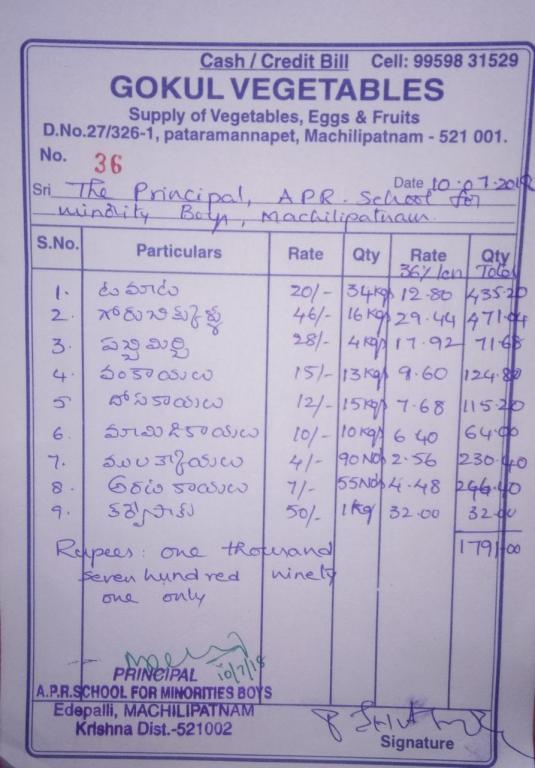 Cash / Credit Bill Cell: 99598 31529
GOKUL VEGETABLES
Supply of Vegetables, Eggs & Fruits
D.No.27/326-1, pataramannapet, Machilipatnam - 521 001.
No. 36
Date 10.07.2018
Sri The Principal, A.P.R. School for
minority Boys, Machilipatnam.
S.No. Particulars Rate Qty Rate Qty
36% len Total
1. టమాట 20/- 34kgs 12.80 435.20
2. గోరుచిక్కుళ్ళు 46/- 16kgs 29.44 471.04
3. పచ్చిమిర్చి 28/- 4kgs 17.92 71.68
4. వంకాయలు 15/- 13kgs 9.60 124.80
5 దోసకాయలు 12/- 15kgs 7.68 115.20
6. మామిడికాయలు 10/- 10kgs 6.40 64.00
7. ములక్కాయలు 4/- 90Nos 2.56 230.40
8. అరటికాయలు 7/- 55Nos 4.48 246.40
9. కర్వేపాకు 50/- 1kg 32.00 32.00
1791.00
Rupees: one thousand
seven hundred ninety
one only
10/7/18
PRINCIPAL
A.P.R.SCHOOL FOR MINORITIES BOYS
Edepalli, MACHILIPATNAM
Krishna Dist.-521002
Signature